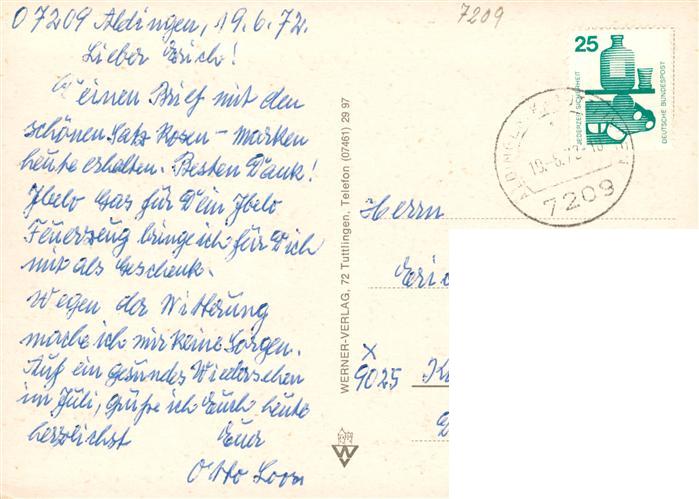 07209 Aldingen, 19.6.72.
Lieber Erich!
Deinen Brief mit den
schönen Satz Rosen-Marken
heute erhalten. Besten Dank!
Ibelo Gas für Dein Ibelo
Feuerzeug bringe ich für Dich
mit als Geschenk.
Wegen der Witterung
mache ich mir keine Sorgen.
Auf ein gesundes Wiedersehen
im Juli, grüße ich Euch heute
herzlichst Euer
Otto
WERNER-VERLAG, 72 Tuttlingen, Telefon (07461) 29 97
W
7209
25
JEDERZEIT SICHERHEIT
DEUTSCHE BUNDESPOST
7209
Herrn
Eric
x
9025